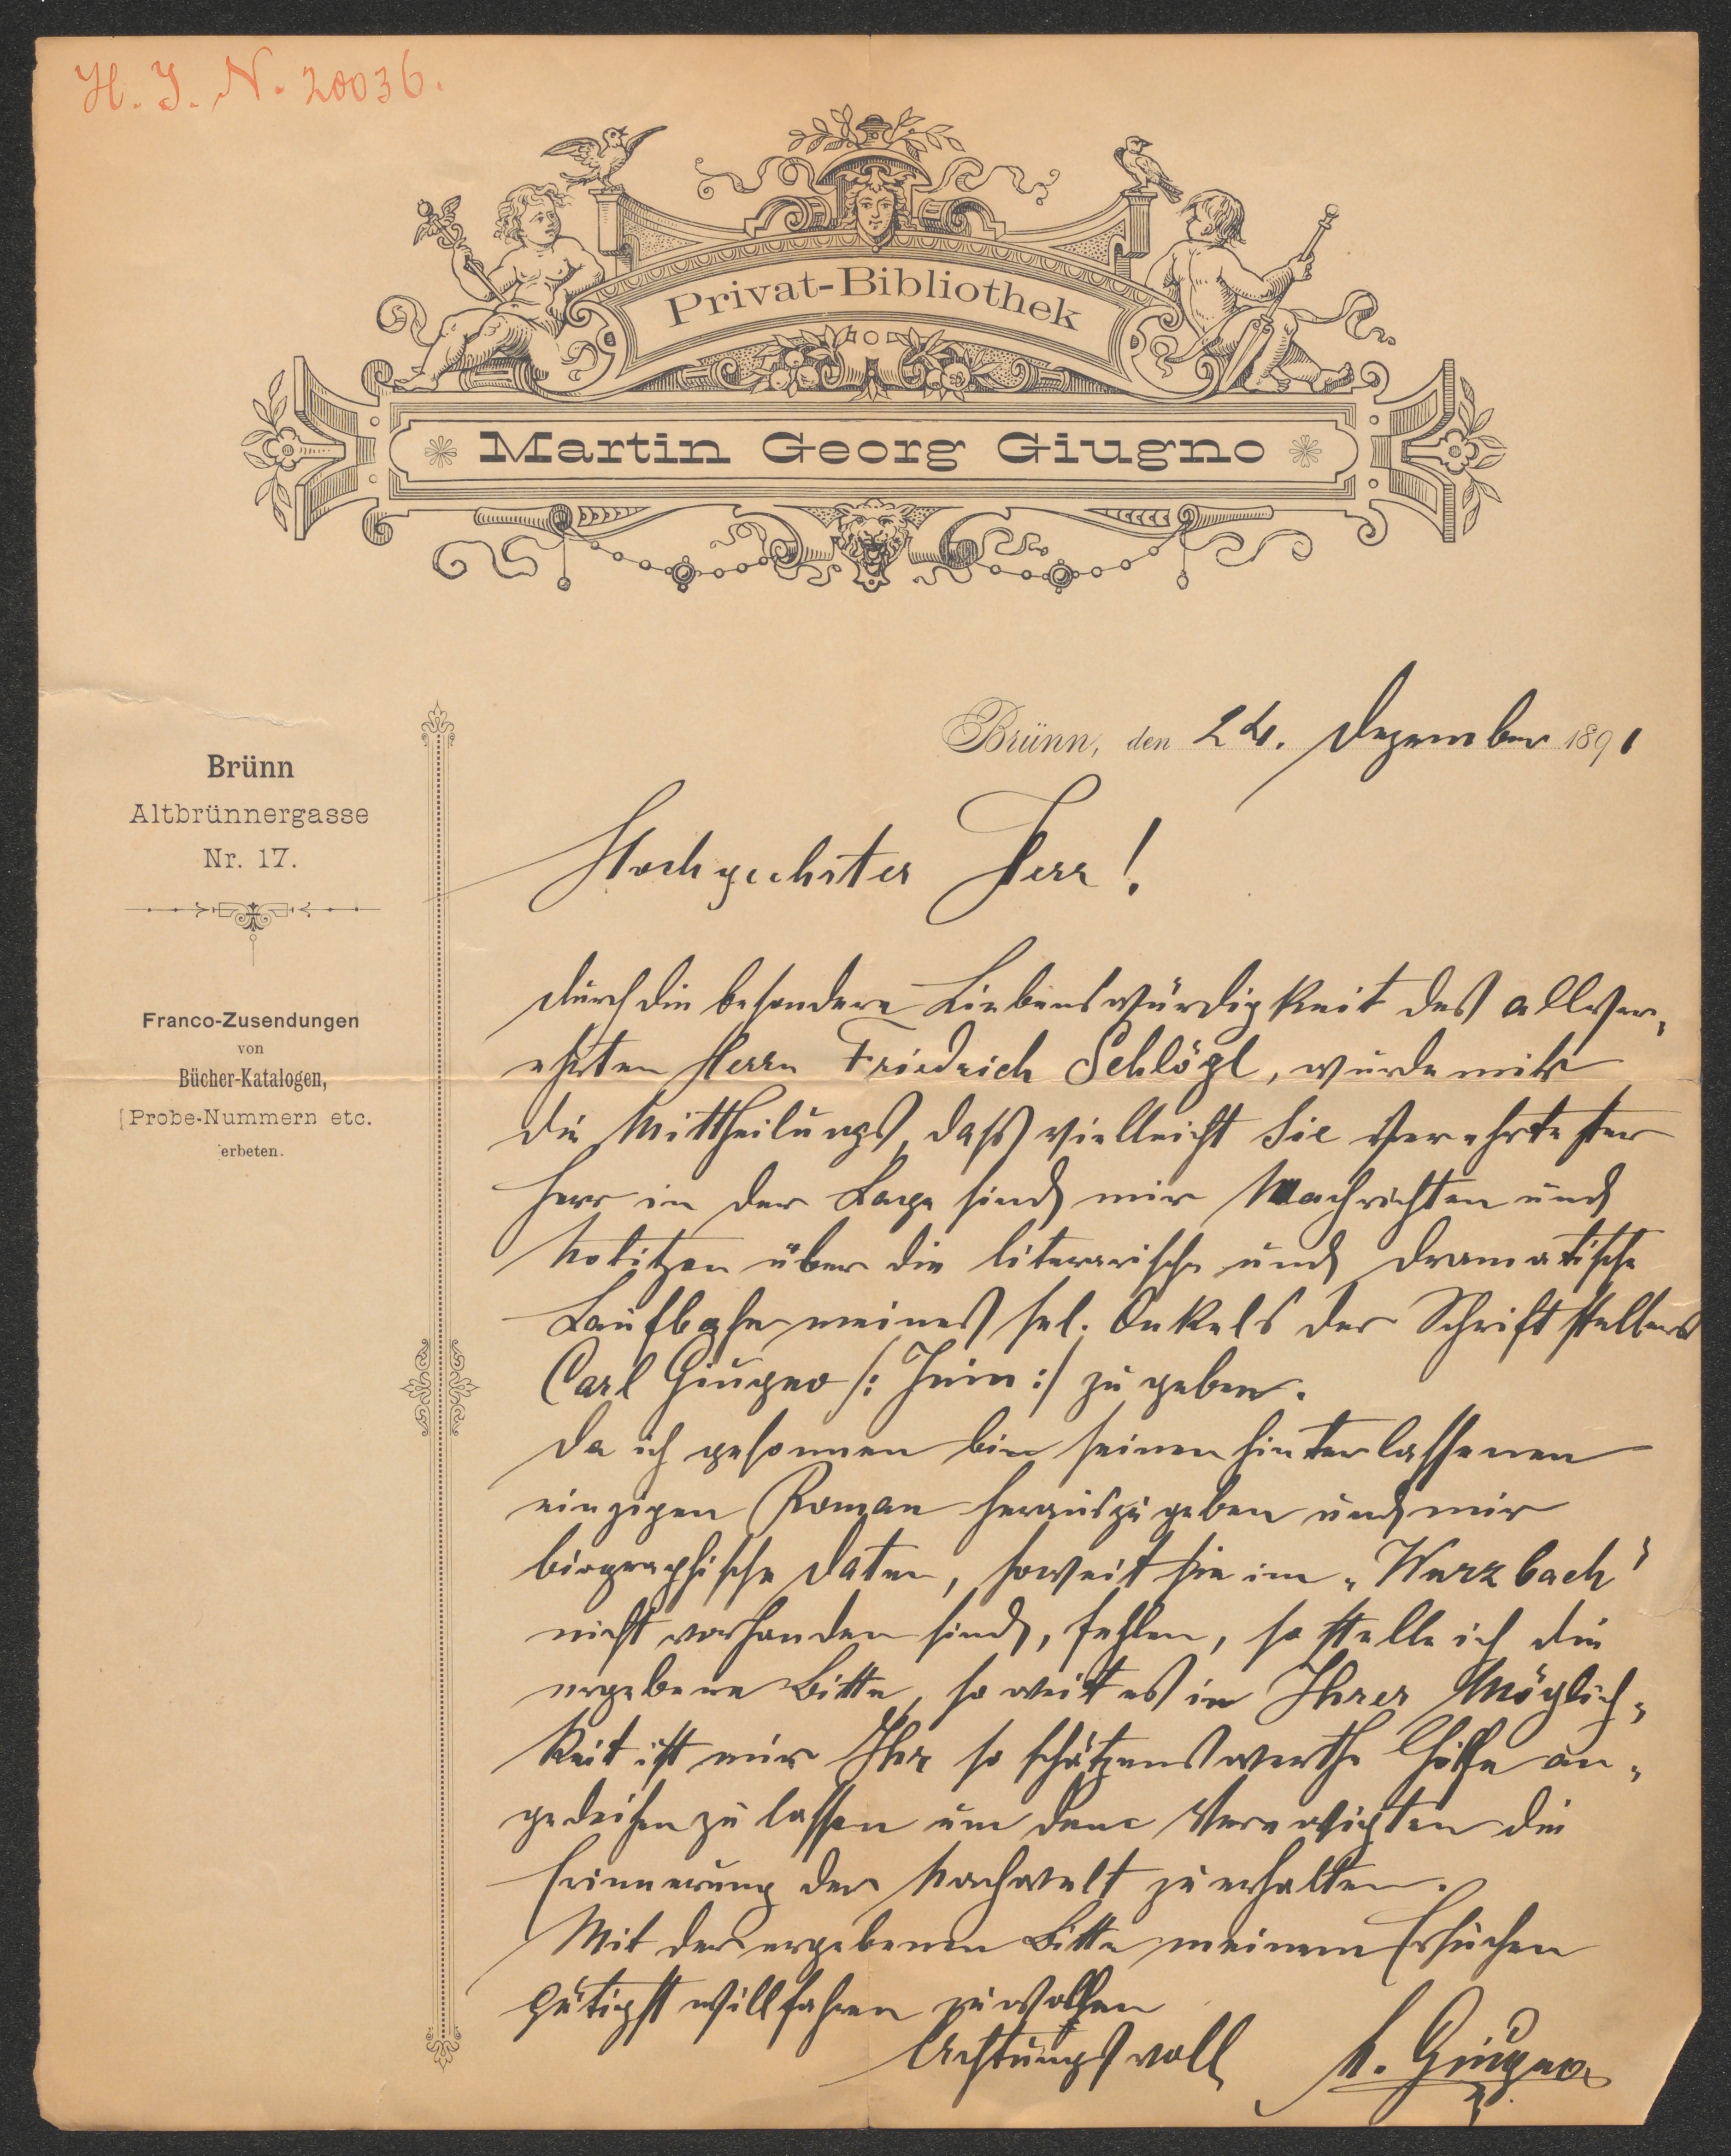 H. I. N. 20036.
Privat-Bibliothek
Martin Georg Giugno
Brünn, den 24. Dezember 1891
Brünn
Altbrünnergasse
Nr. 17.
Franco-Zusendungen
von
Bücher-Katalogen,
Probe-Nummern etc.
erbeten.
Hochgeehrter Herr!
durch die besondere Liebenswürdigkeit des allver-
ehrten Herrn Friedrich Schlögl, wurde mir
die Mittheilung, daß vielleicht Sie verehrtester
Herr in der Lage sind mir Nachrichten und
Notitzen über die literarische und dramatische
Laufbahn meines sel. Onkels der Schriftstellers
Carl Giugno /: Juin :/ zu geben.
Da ich gesonnen bin seinen hinterlassenen
einzigen Roman herauszugeben und mir
biographische Daten, soweit sie im „Wurzbach"
nicht vorhanden sind, fehlen, so stelle ich die
ergebene Bitte, so weit es in Ihrer Möglich-
keit ist mir Ihr so schätzenswerthe Hilfe an-
gedeihen zu lassen um dem Verewigten die
Erinnerung der Nachwelt zu erhalten.
Mit der ergebenen Bitte meinem Ersuchen
gütigst willfahren zu wollen
Achtungsvoll M. Giugno